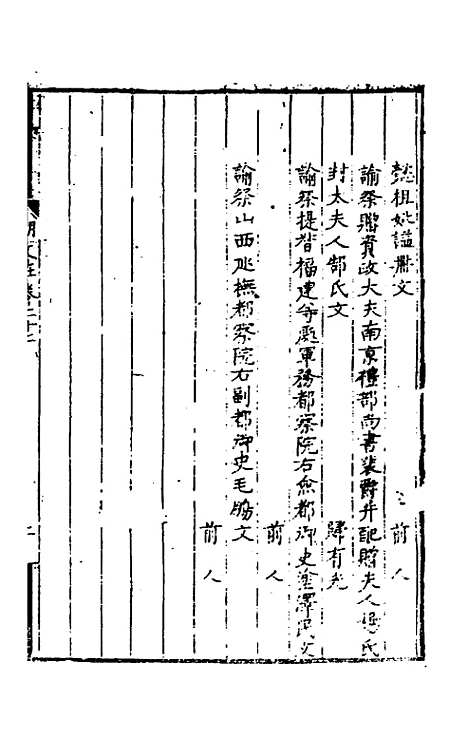 懿祖妣謚冊文 前人
諭祭贈資政大夫南京禮部尚書裴爵并配贈夫人 氏
封太夫人郜氏文 歸有光
諭祭提督福建等處軍務都察院右僉都御史塗澤民文
前人
諭祭山西巡撫都察院右副都御史毛鵬文
前人
明文 卷二十